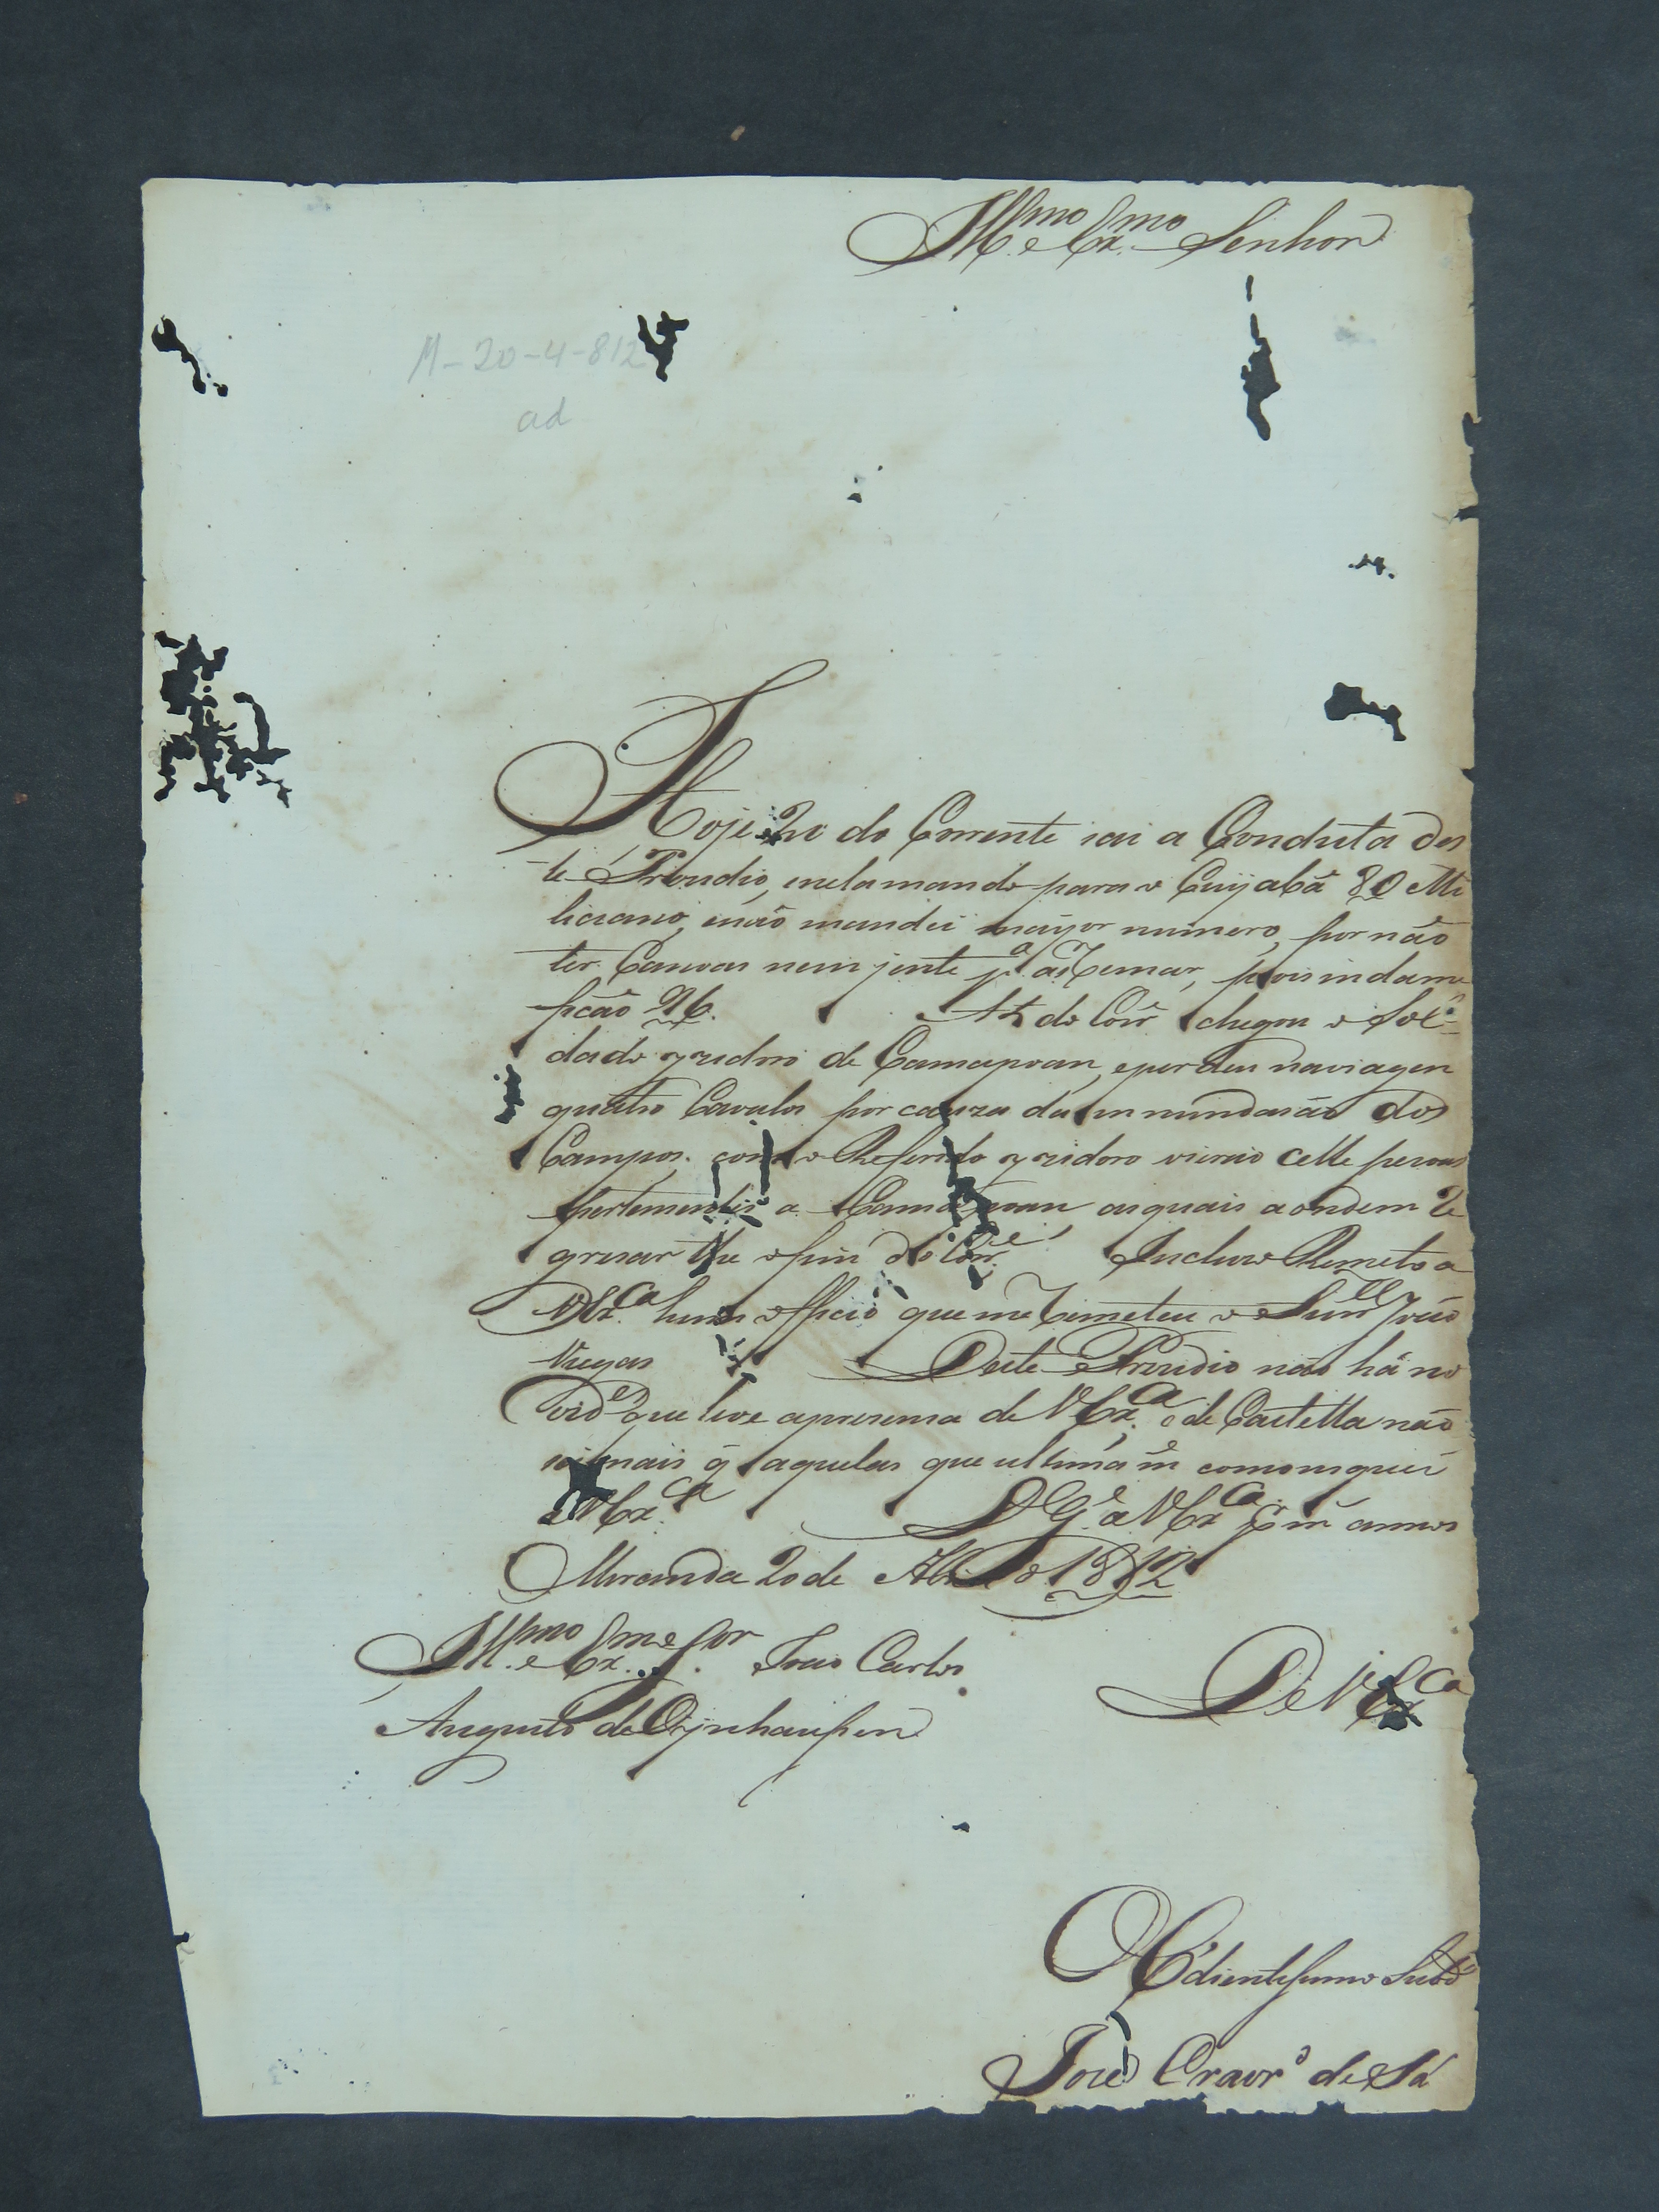 Ill.mo e Ex.mo Senhor
M-20-4-812
ad
Hoje 20 do Corrente sai a Conduta des
te Prezidio, enela mando para o Cuyabá 80 Mi
licianos, enão mandei mayor numero, por não
ter Canoas nem jente p.a as Remar, pois indame
ficão 26. A 2 do Corr.e chegou o Sol-
dado yzidoro de Camapoan, eperdeu naviagen
quatro Cavalos por cauza da innundasão dos
Campos. com o Referido yzidoro vierão cette pesoas
pertensentes a Camapoan asquais aondem Re
gresar the ofim do Corr.e Incluzo Remeto a
V Ex.ca hum officio que me Remeteu o João
Viegas Deste Prezidio não há no
vid.es que leve apresensa de V Ex.ca, e de Castella não
sei mais q̃ aquelas que ultimam.e comoniquei
a V Ex.ca D.s G.e a V Ex.ca p.r m.s annos
Miranda 20 de Abril de 1812
Ill.mo e Ex.mo S.or João Carlos
Augusto de Oijnhaussen
De V Ex.ca
Obdientissimo Subd.o
José Cravr.o de Sá